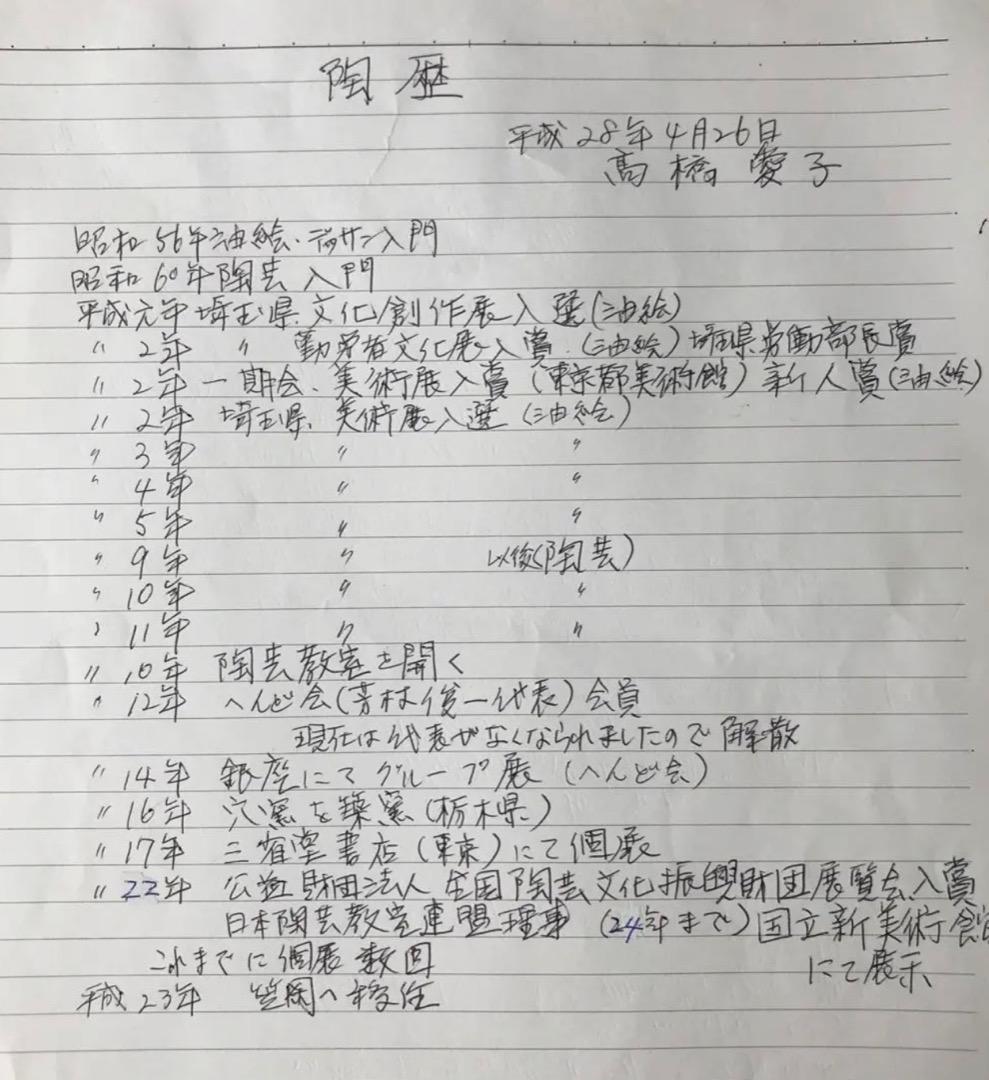 陶歴
平成28年4月26日
髙橋愛子
昭和56年油絵・デッサン入門
昭和60年陶芸入門
平成元年埼玉県文化創作展入選(油絵)
〃2年 〃 勤労者文化展入賞(油絵)埼玉県労働部長賞
〃2年 一期会美術展入賞(東京都美術館)新人賞(油絵)
〃2年 埼玉県美術展入選(油絵)
〃3年 〃 〃
〃4年 〃 〃
〃5年 〃 〃
〃9年 〃 以後(陶芸)
〃10年 〃 〃
〃11年 〃 〃
〃10年 陶芸教室を開く
〃12年 へんど会(芳村俊一代表)会員
現在は代表がなくなられましたので解散
〃14年 銀座にてグループ展(へんど会)
〃16年 穴窯を築窯(栃木県)
〃17年 三省堂書店(東京)にて個展
〃22年 公益財団法人全国陶芸文化振興財団展覧会入賞
日本陶芸教室連盟理事(24年まで)国立新美術館
にて展示
これまでに個展数回
平成23年 笠間へ移住